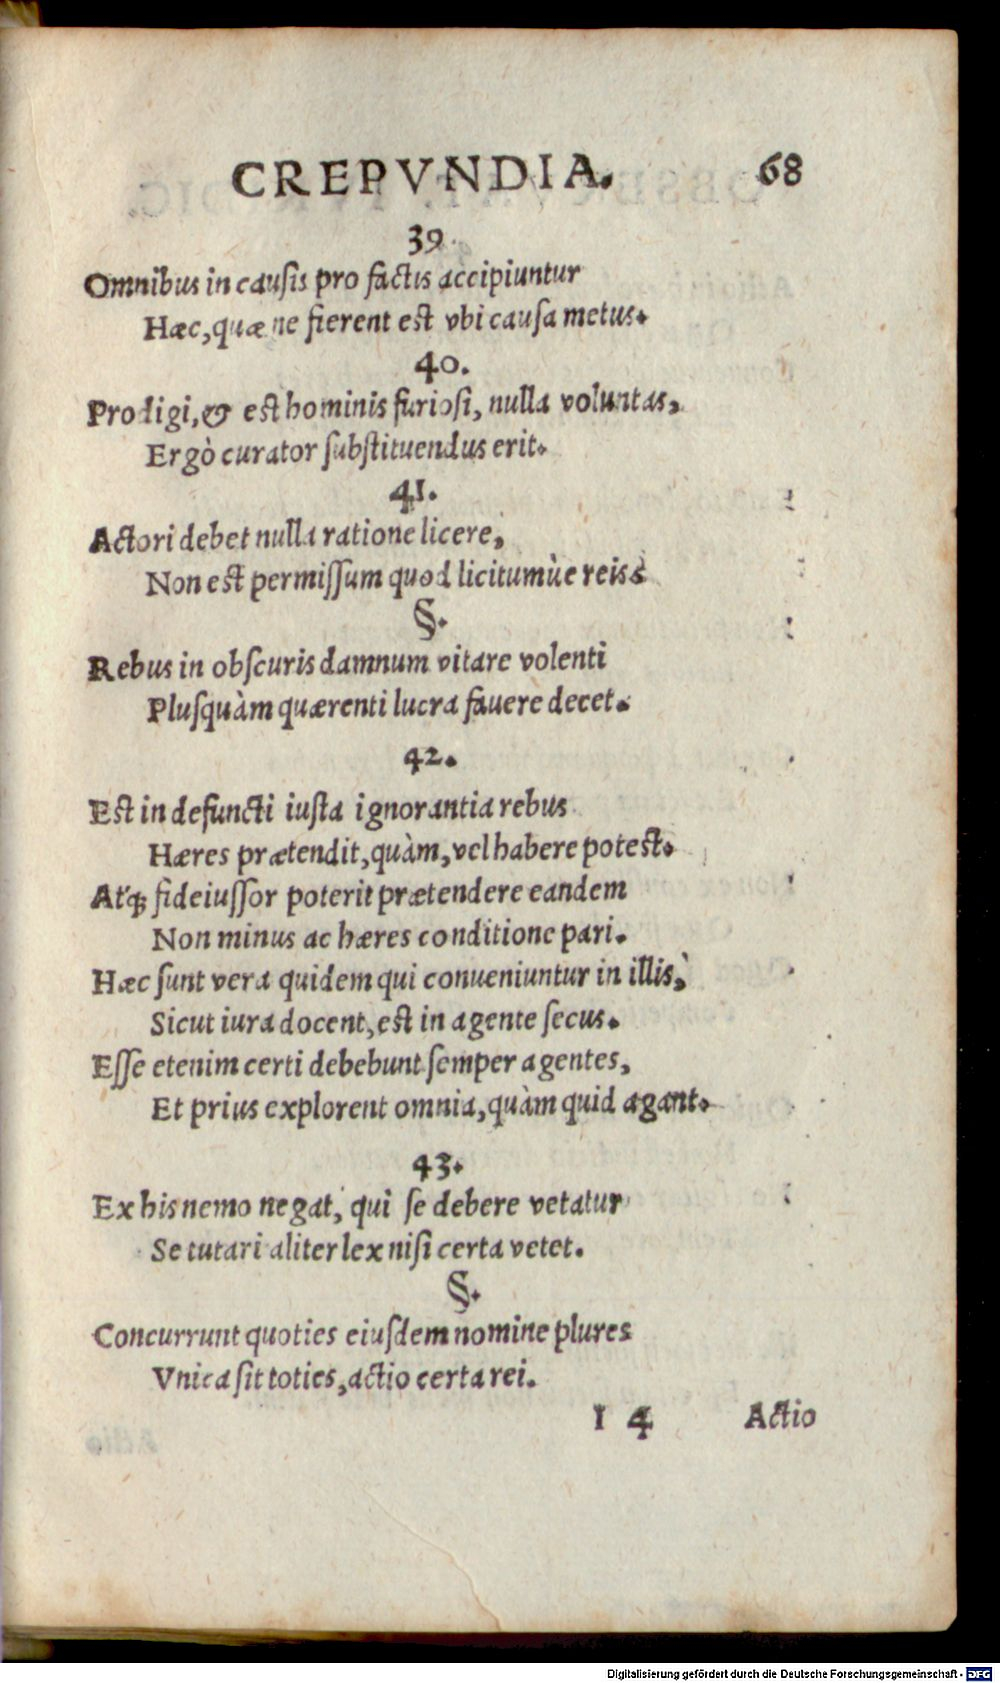 CREPVNDIA. 68
39.
Omnibus in causis pro factis accipiuntur
Hæc, quæ ne fierent est vbi causa metus.
40.
Prodigi, & est hominis furiosi, nulla voluntas,
Ergò curator substituendus erit.
41.
Actori debet nulla ratione licere,
Non est permissum quod licitumùe reis.
§.
Rebus in obscuris damnum vitare volenti
Plusquàm quærenti lucra fauere decet.
42.
Est in defuncti iusta ignorantia rebus
Hæres prætendit, quàm, vel habere potest.
Atq́; fideiussor poterit prætendere eandem
Non minus ac hæres conditione pari.
Hæc sunt vera quidem qui conueniuntur in illis,
Sicut iura docent, est in agente secus.
Esse etenim certi debebunt semper agentes,
Et prius explorent omnia, quàm quid agant.
43.
Ex his nemo negat, qui se debere vetatur
Se tutari aliter lex nisi certa vetet.
§.
Concurrunt quoties eiusdem nomine plures
Vnica sit toties, actio certa rei.
I 4 Actio
Digitalisierung gefördert durch die Deutsche Forschungsgemeinschaft - DFG